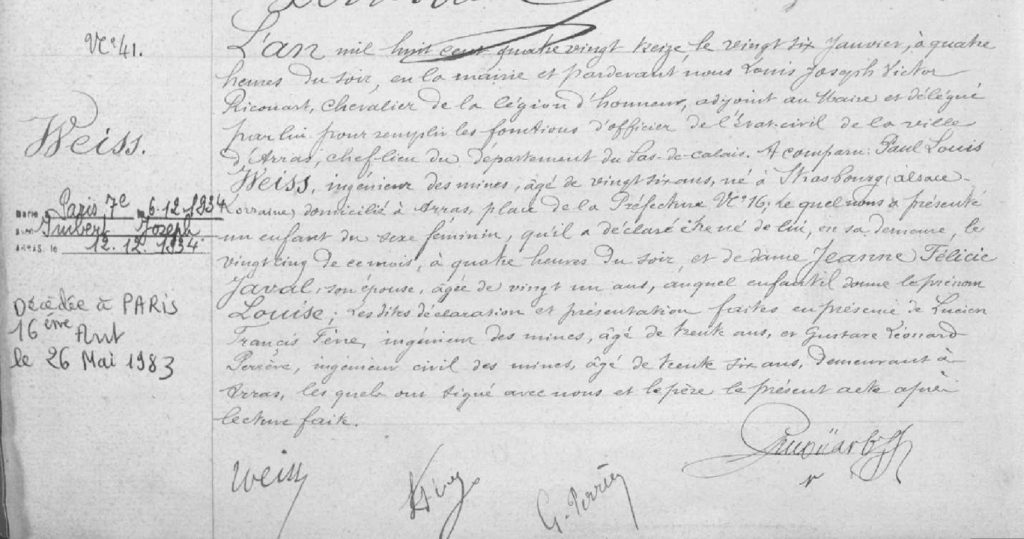 N° 41.
Weiss.
Marié Paris, 7e le 6-12-1934
avec Imbert Joseph
12.12.1934
Décédée à PARIS
16 ème Arrt
le 26 Mai 1983
L'an mil huit cent quatre vingt treize le vingt six Janvier, à quatre
heures du soir, en la mairie et pardevant nous Louis Joseph Victor
Ricouart, Chevalier de la légion d'honneur, adjoint au Maire et délégué
par lui pour remplir les fonctions d'officier de l'état-civil de la ville
d'Arras, chef-lieu du département du Pas-de-calais. A comparu Paul Louis
Weiss, ingénieur des mines, âgé de vingt six ans, né à Strasbourg (alsace-
Lorraine) domicilié à Arras, place de la Préfecture N° 16, le quel nous a présenté
un enfant du sexe féminin, qu'il a déclaré être né de lui, en sa demeure, le
vingt cinq de ce mois, à quatre heures du soir, et de dame Jeanne Félicie
Javal, son épouse, âgée de vingt un ans, auquel enfant il donne le prénom
Louise; Lesdites déclaration et présentation faites en présence de Lucien
Francis Fèvre, ingénieur des mines, âgé de trente ans, et Gustave Léonard
Perrère, ingénieur civil des mines, âgé de trente six ans, demeurant à
Arras, les quels ont signé avec nous et le père le présent acte après
lecture faite.
Weiss